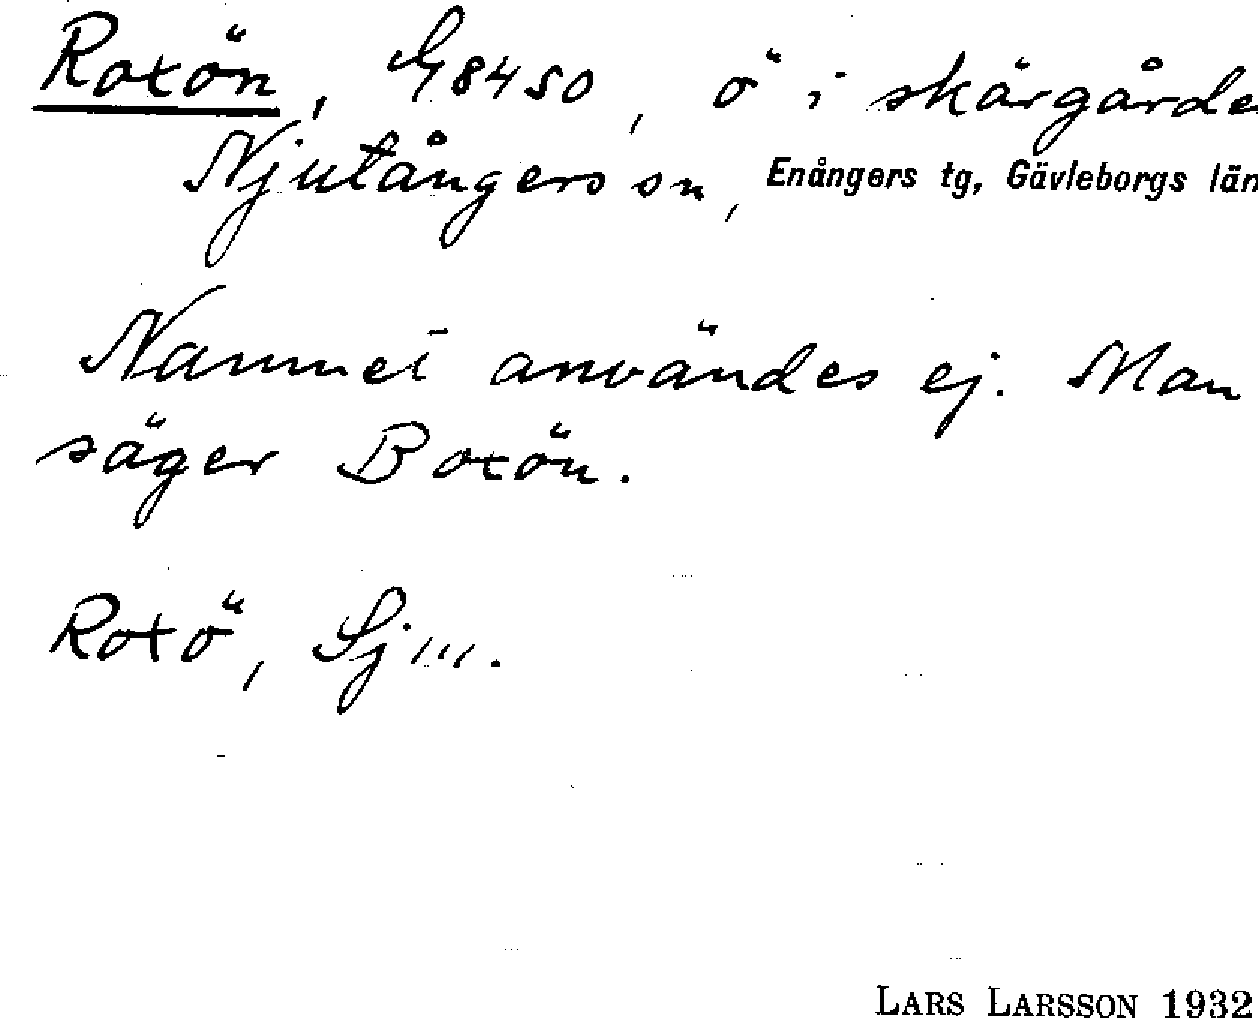 Roxön, G8450, ö i skärgårde
Njutångers sn, Enångers tg, Gävleborgs län
Namnet användes ej. Man
säger Boxön.
Roxö, Sj 111.
LARS LARSSON 1932